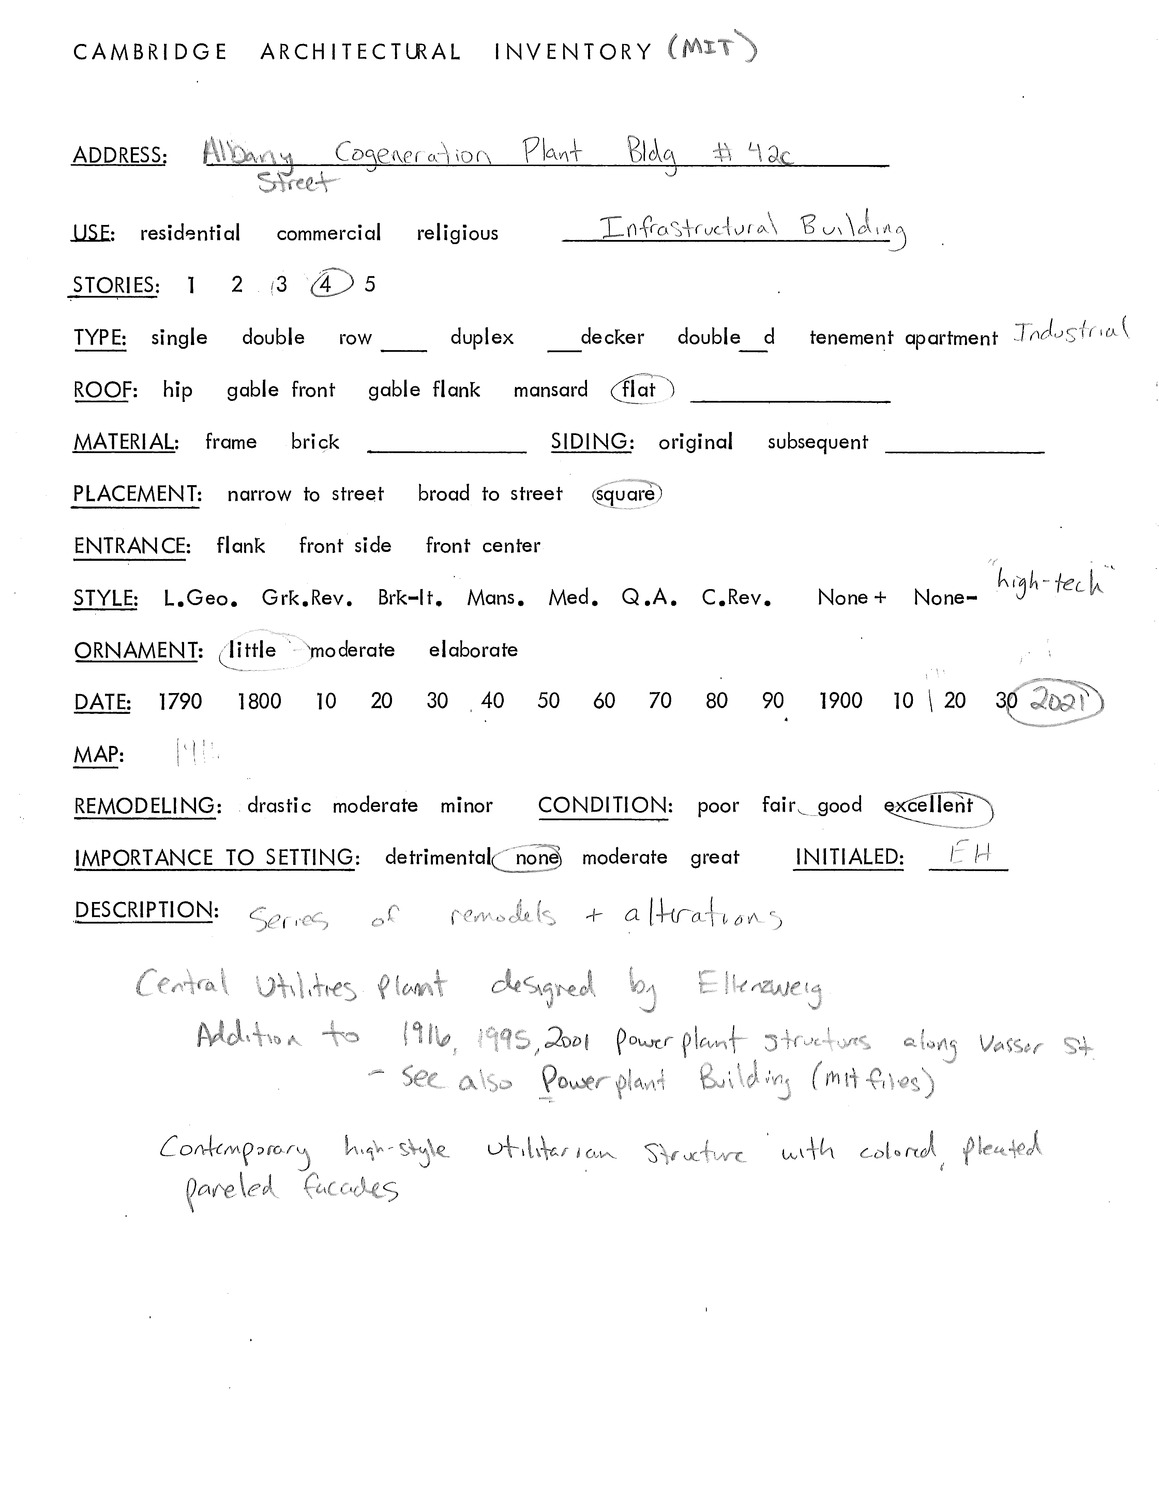 CAMBRIDGE ARCHITECTURAL INVENTORY (MIT)
ADDRESS: Albany Cogeneration Plant Bldg # 42c
Street
USE: residential commercial religious Infrastructural Building
STORIES: 1 2 3 4 5
TYPE: single double row ___ duplex ___decker double__d tenement apartment Industrial
ROOF: hip gable front gable flank mansard flat ___
MATERIAL: frame brick ___ SIDING: original subsequent ___
PLACEMENT: narrow to street broad to street square
ENTRANCE: flank front side front center
STYLE: L.Geo. Grk.Rev. Brk-It. Mans. Med. Q.A. C.Rev. None+ None- "high-tech"
ORNAMENT: little moderate elaborate
DATE: 1790 1800 10 20 30 40 50 60 70 80 90 1900 10 20 30 2021
MAP:
REMODELING: drastic moderate minor CONDITION: poor fair good excellent
IMPORTANCE TO SETTING: detrimental none moderate great INITIALED: EH
DESCRIPTION: Series of remodels + alterations
Central Utilities Plant designed by Ellenzweig
Addition to 1916, 1995, 2001 powerplant structures along Vassar St.
- see also Powerplant Building (mit files)
Contemporary high-style utilitarian structure with colored, pleated
paneled facades